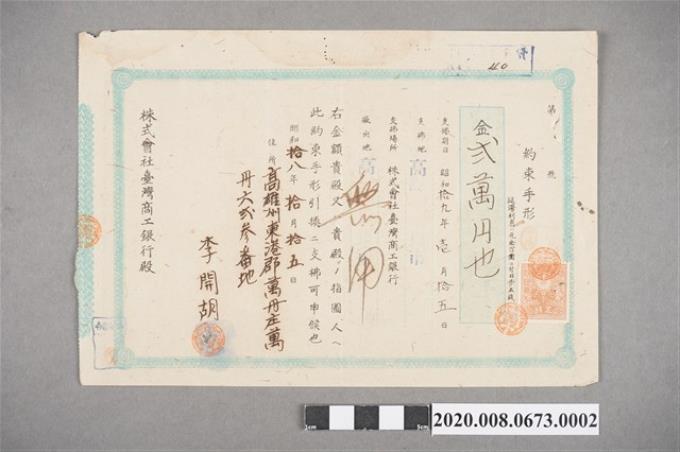 第 號
約束手形
金貳萬円也
支拂期日 昭和拾九年壱月拾五日
支拂地 高
支拂場所 株式會社臺灣商工銀行
振出地 高
無用
右金額貴殿又ハ貴殿ノ指圖人ヘ
此約束手形引換ニ支拂可申候也
昭和拾八年拾月拾五日
住所 高雄州東港郡萬丹庄萬
丹六貳參番地
李開胡
株式會社臺灣商工銀行殿
40
1cm
5cm
2020.008.0673.0002